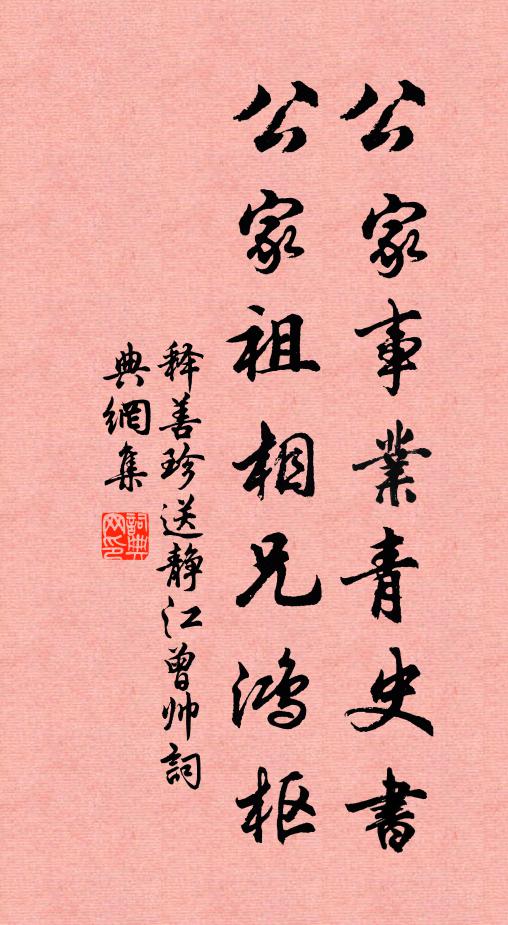 公家事業青史書
公家祖相兄鴻枢
释善珍送静江曾帅詞
典網集
詞典网印